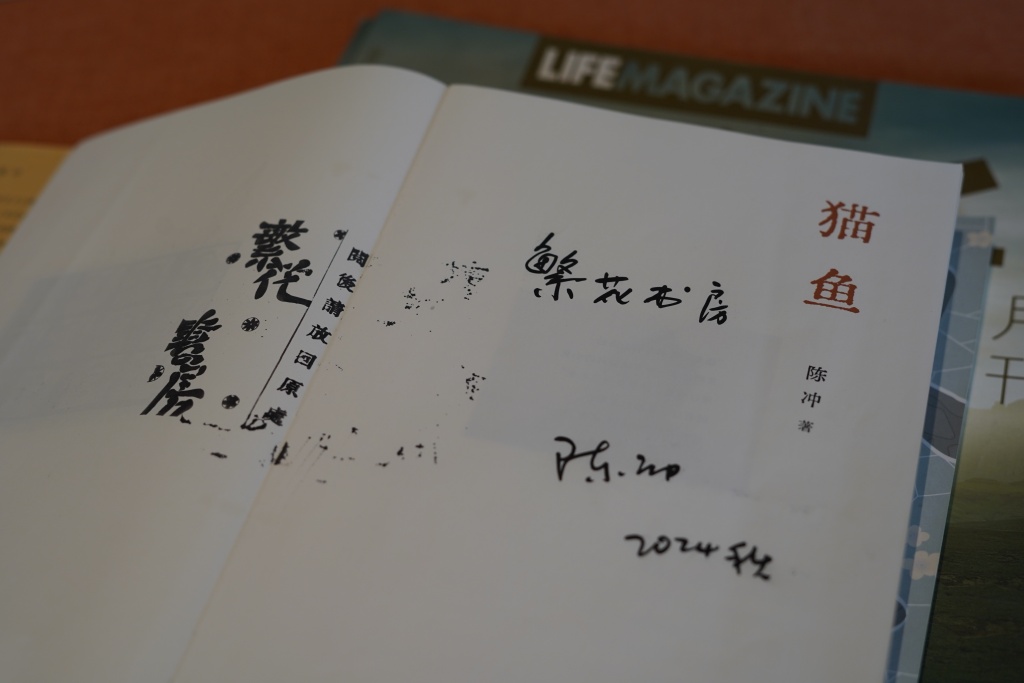 LIFEMAGAZINE
猫鱼
陈冲 著
繁花书房
陈冲
2024 秋
繁花
書房
閱後請放回原處
月
刊